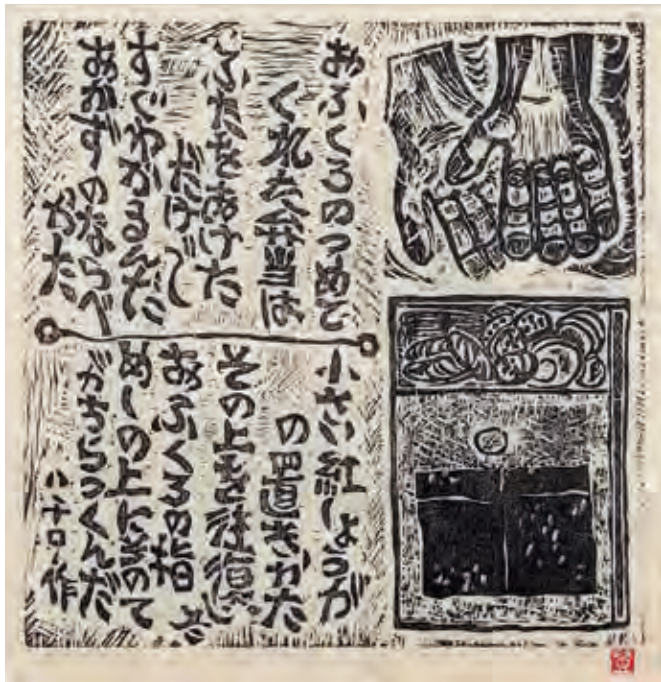 おふくろのつめて
くれた弁当は
ふたをあけた
だけで
すぐわかるんだ
おかずのならべ
かた
小さい紅しょうが
の置きかた
その上を往復し
おふくろの指さ
めしの上にそのて
がちらつくんだ
ハチロー作